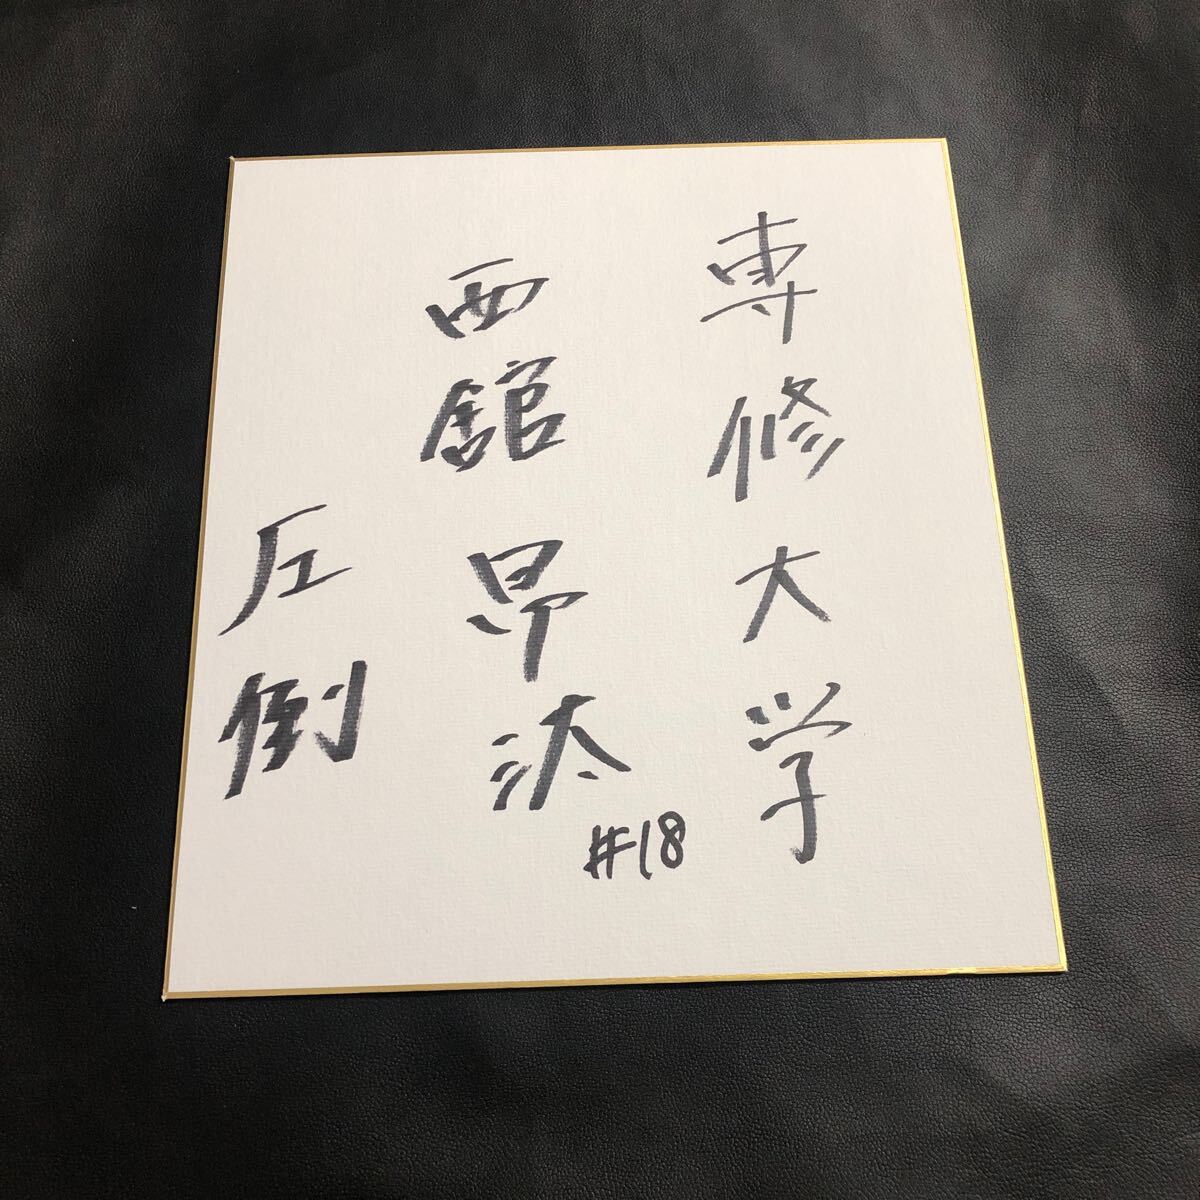 専修大学
西舘昂汰
#18
圧倒